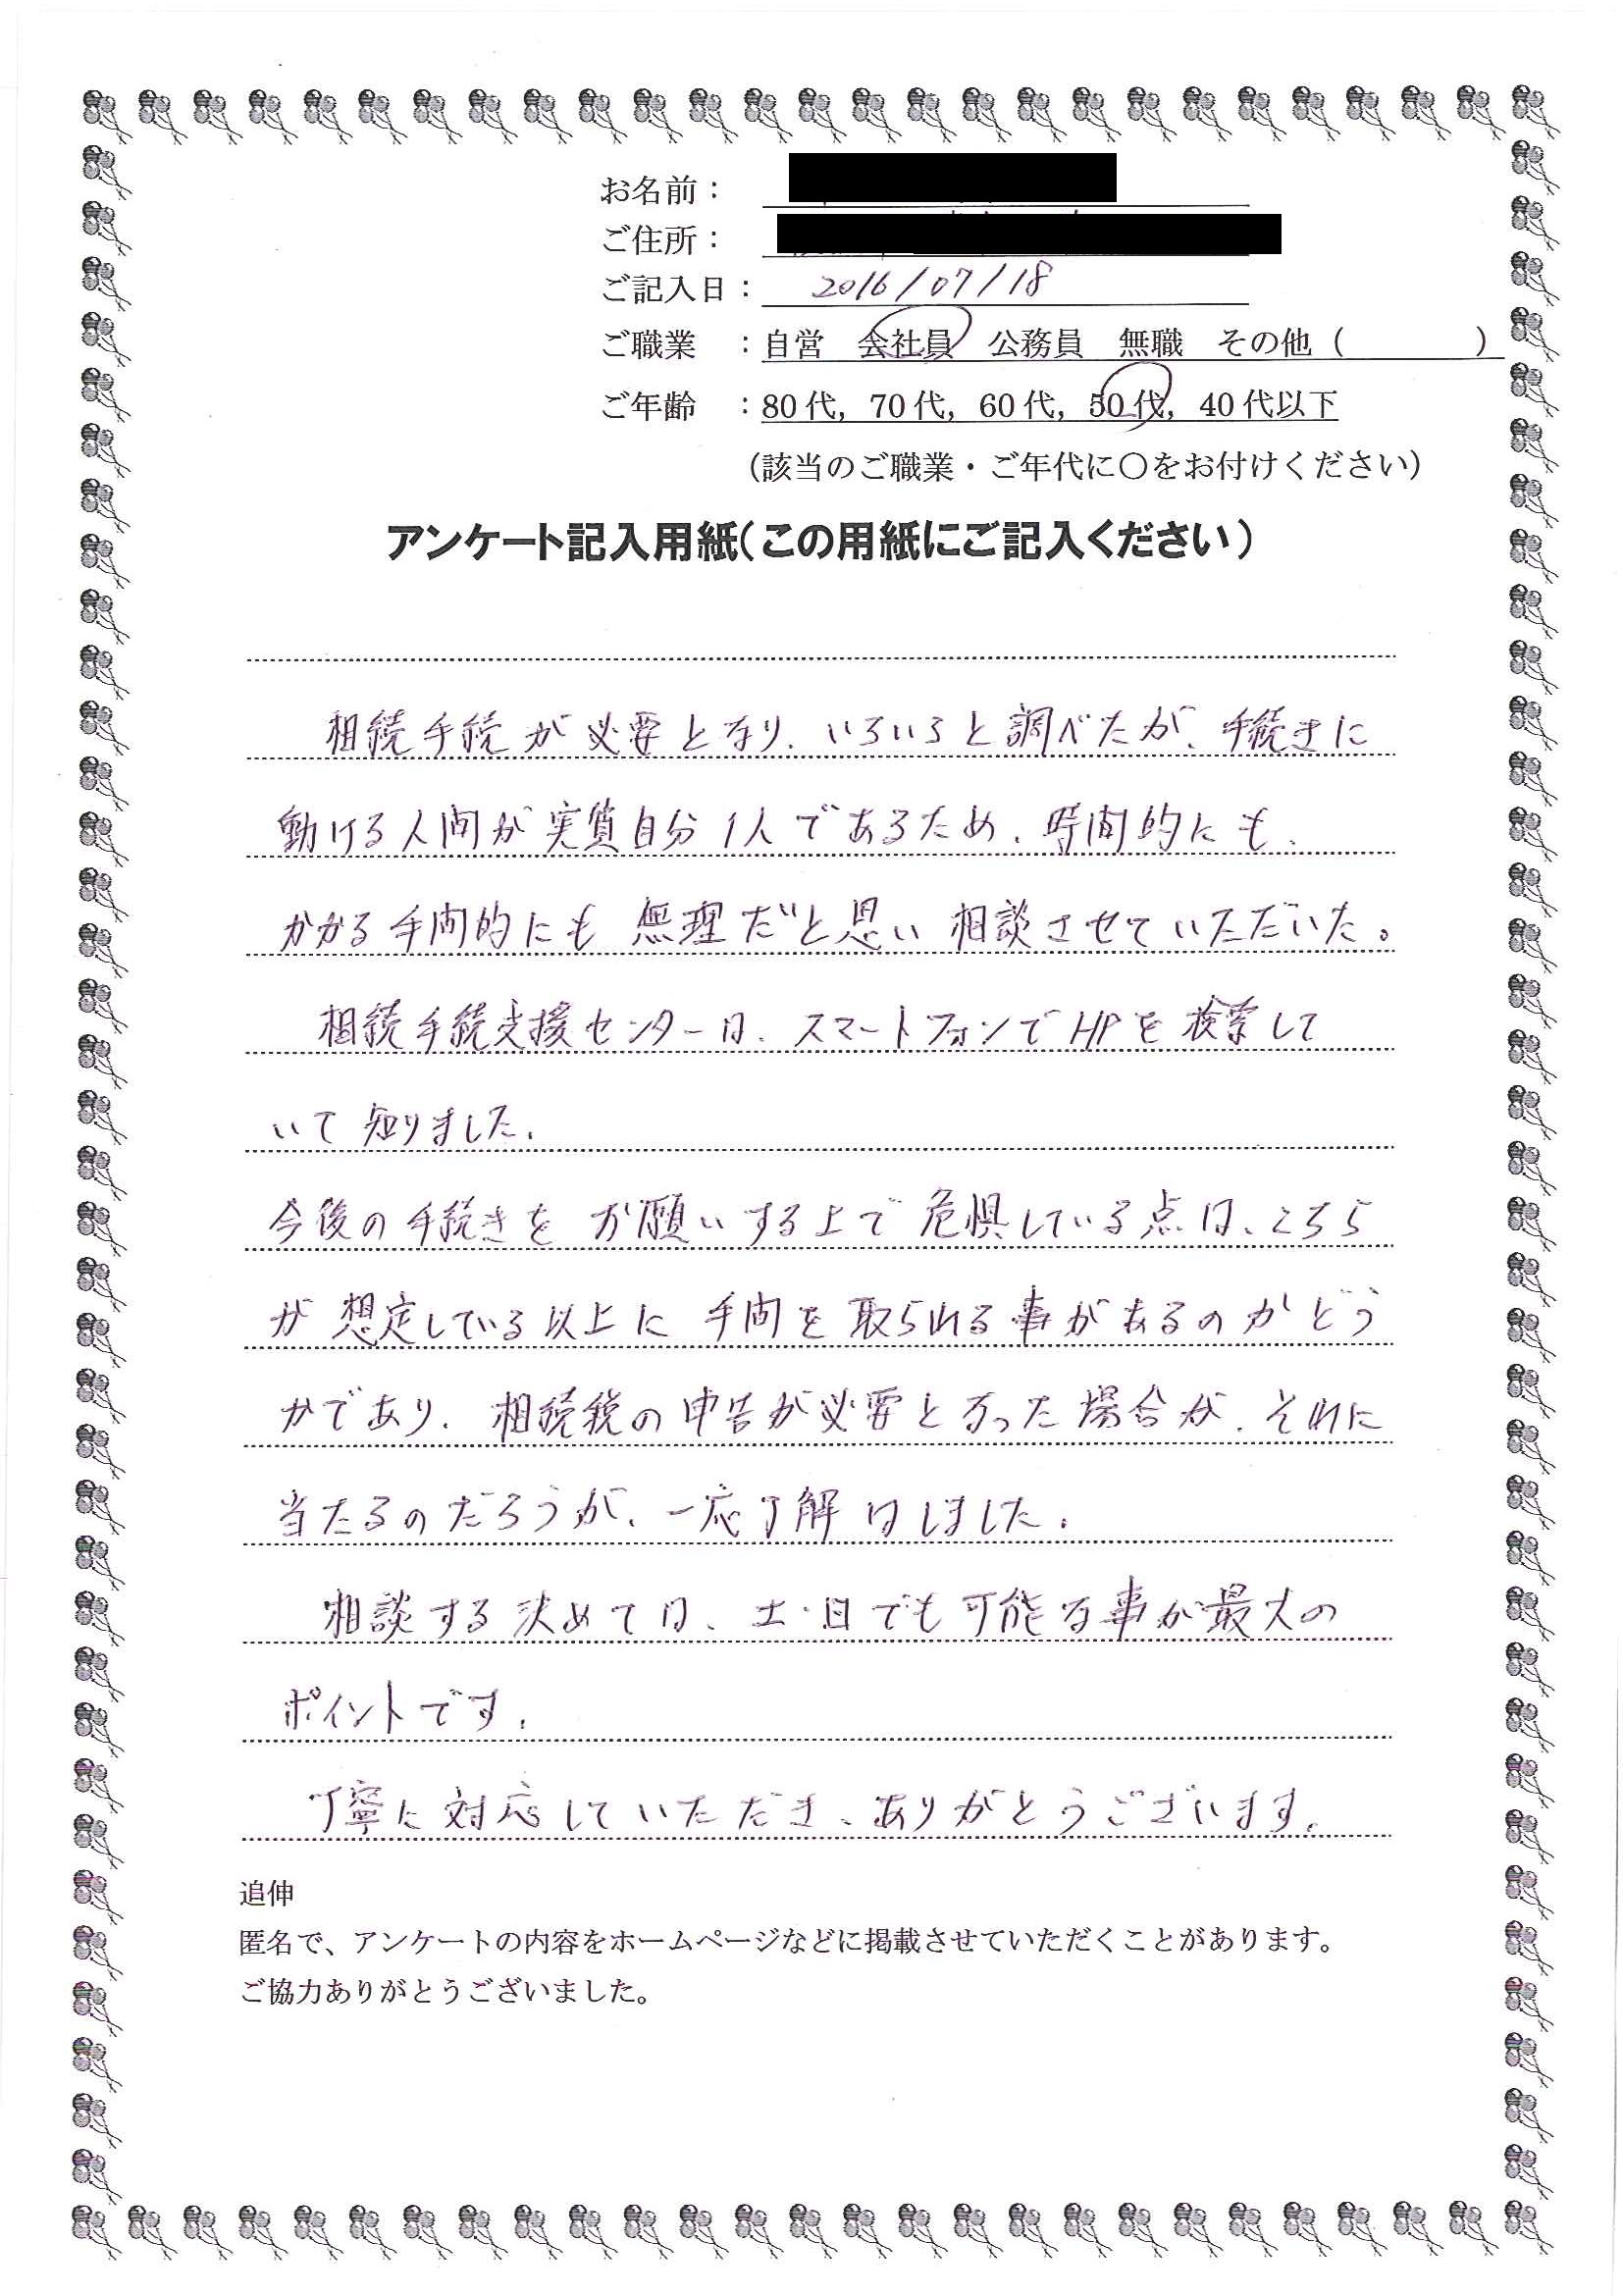 お名前：
ご住所：
ご記入日： 2016/07/18
ご職業 ：自営 会社員 公務員 無職 その他（ ）
ご年齢 ：80代，70代，60代，50代，40代以下
（該当のご職業・ご年代に〇をお付けください）
アンケート記入用紙（この用紙にご記入ください）
相続手続が必要となり、いろいろと調べたが、手続きに
動ける人間が実質自分1人であるため、時間的にも、
かかる手間的にも無理だと思い相談させていただいた。
相続手続支援センターは、スマートフォンでHPを検索して
いて知りました。
今後の手続きをお願いする上で危惧している点は、こちら
が想定している以上に手間を取られる事があるのかどう
かであり、相続税の申告が必要となった場合が、それに
当たるのだろうが、一応了解はしました。
相談する決めては、土・日でも可能な事が最大の
ポイントです。
丁寧に対応していただき、ありがとうございます。
追伸
匿名で、アンケートの内容をホームページなどに掲載させていただくことがあります。
ご協力ありがとうございました。